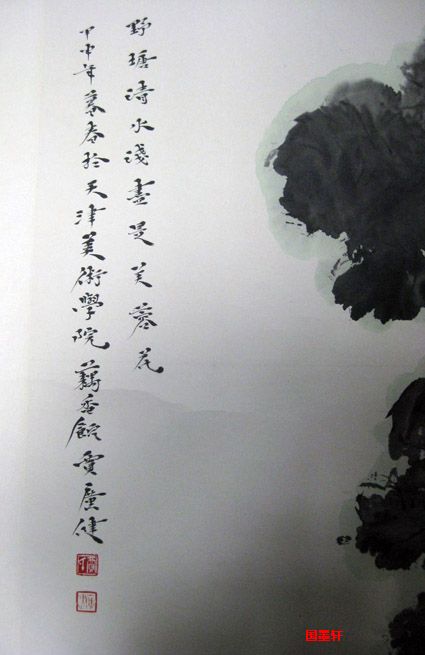 野塘清水淺盡是芙蓉花
甲申年暮春於天津美術學院藕香館賈廣健
国墨轩